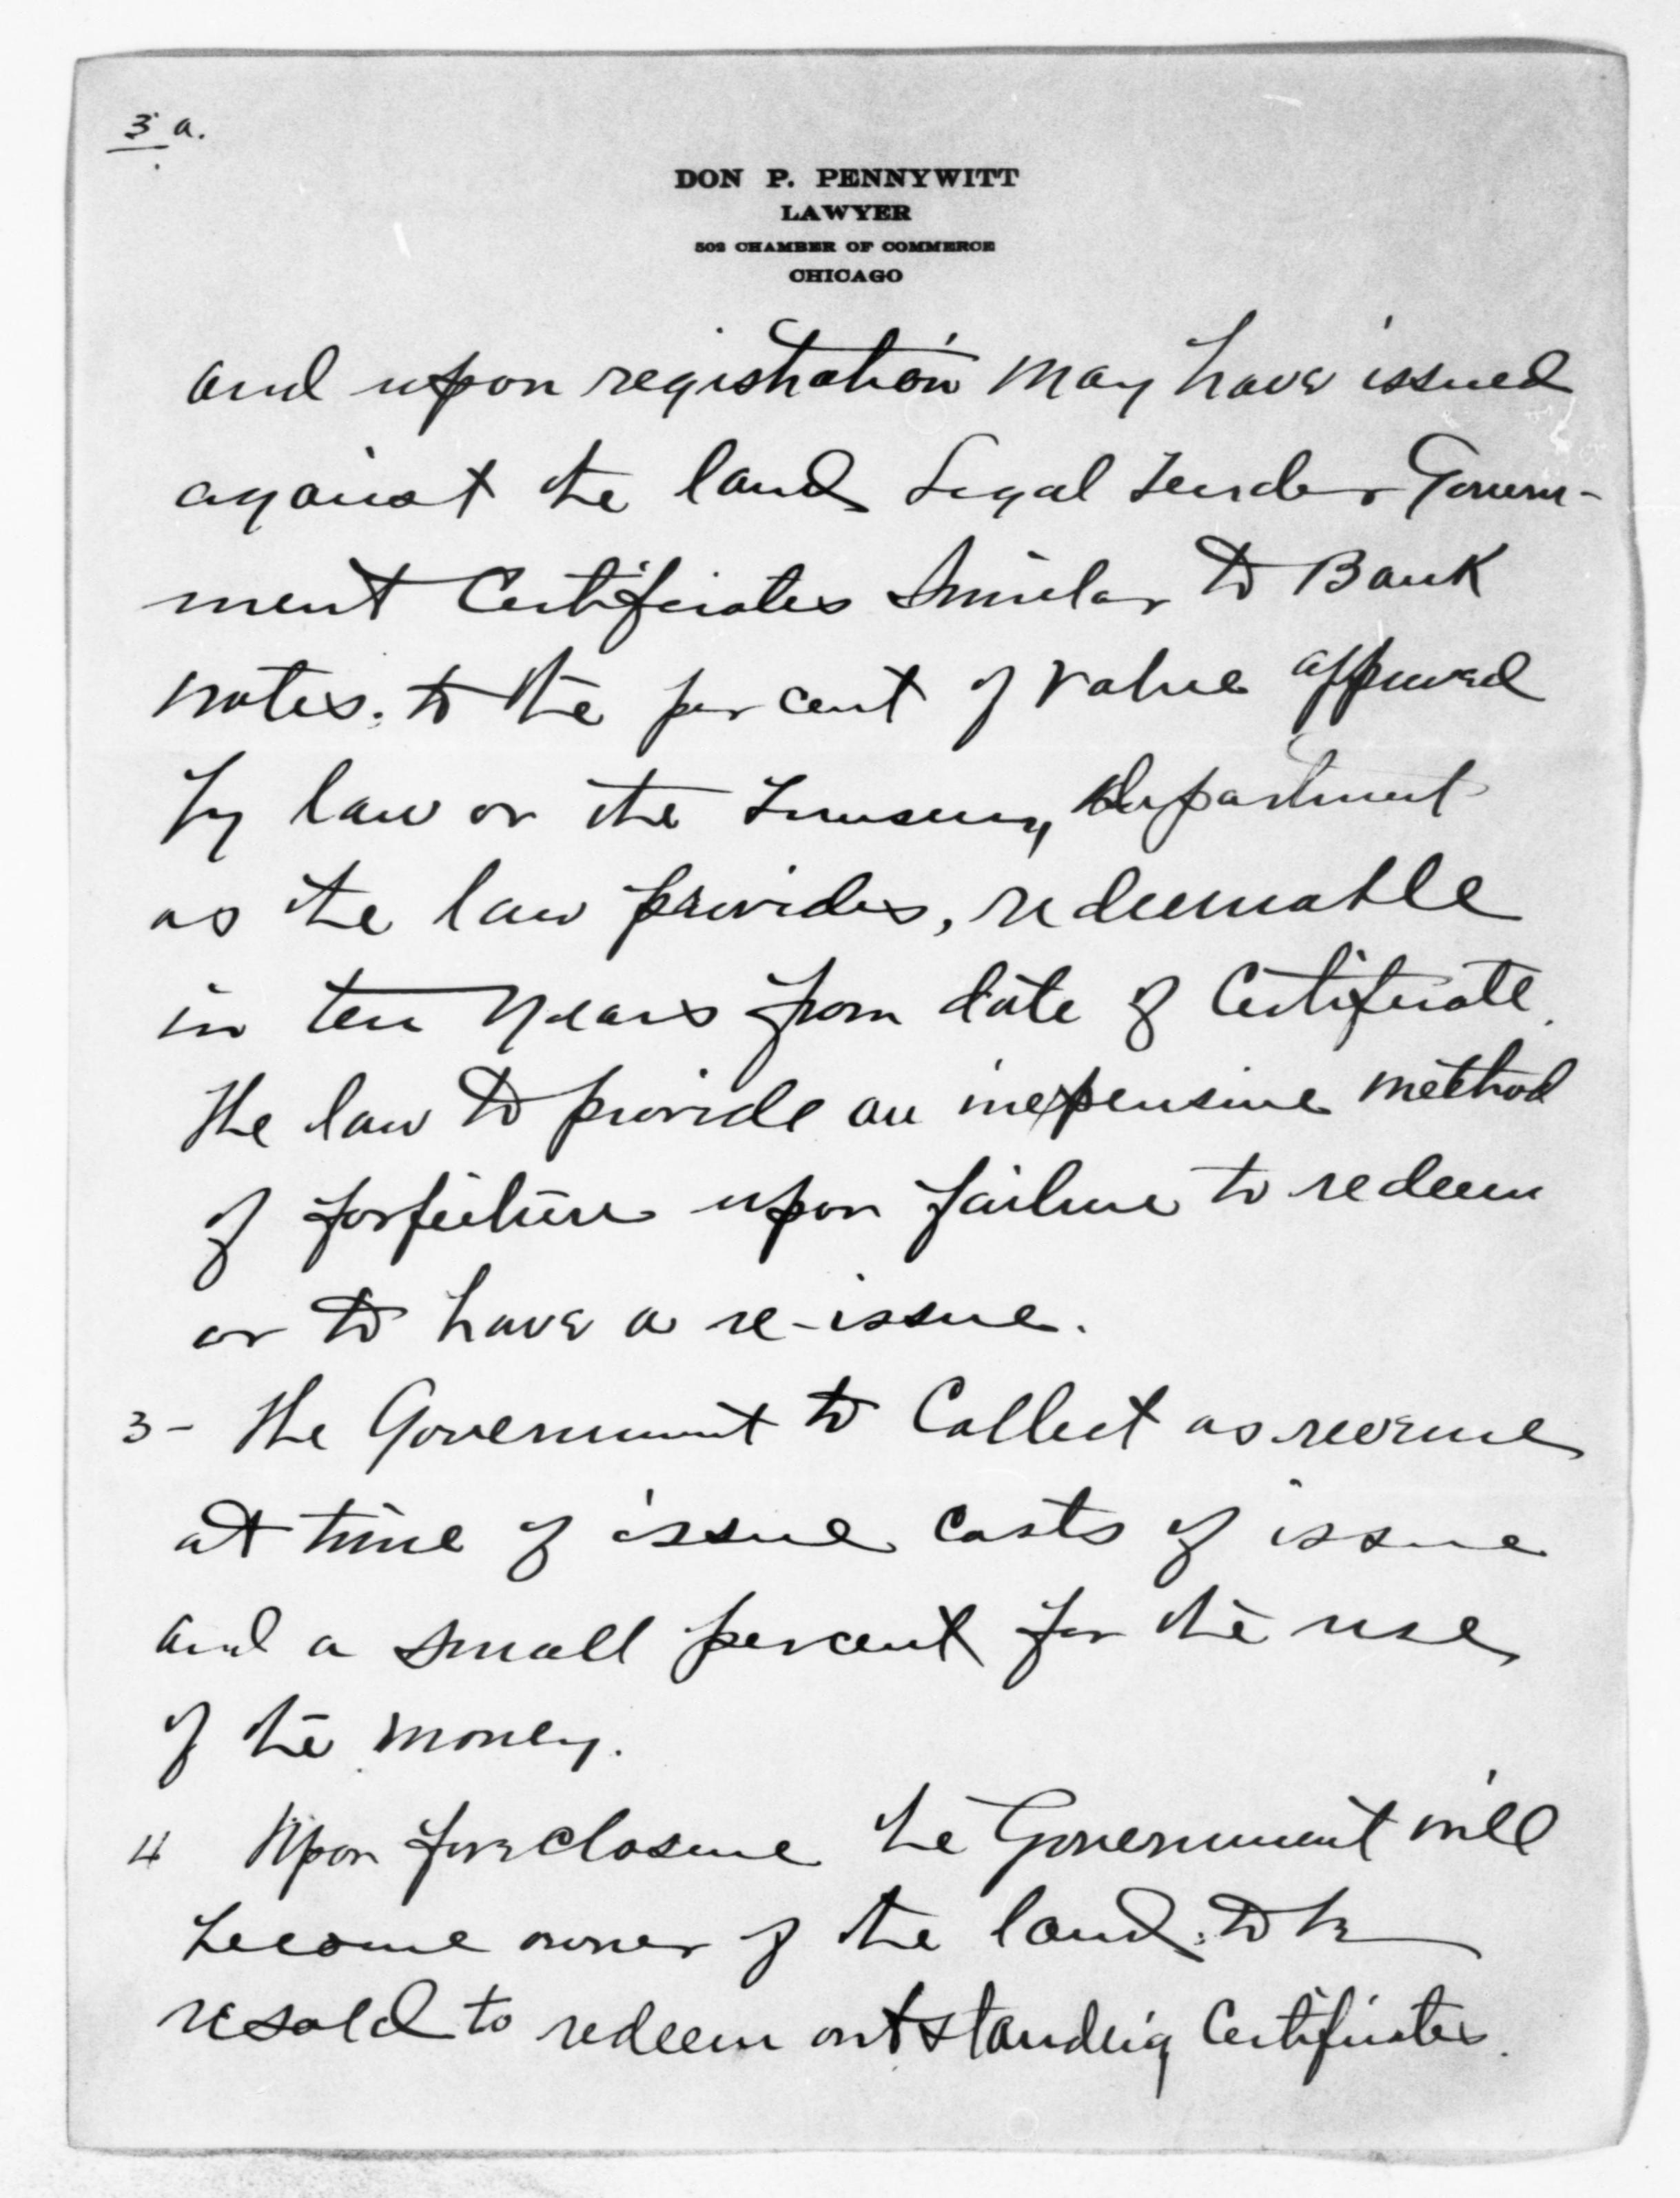 3 a.
DON P. PENNYWITT
LAWYER
502 CHAMBER OF COMMERCE
CHICAGO
and upon registration may have issued
against the land Legal Tender Govern-
ment Certificates similar to Bank
notes, to the per cent of value approved
by law or the Treasury department
as the law provides, redeemable
in ten years from date of Certificate.
The law to provide an inexpensive method
of forfeiture upon failure to redeem
or to have a re-issue.
3- The Government to Collect as revenue
at time of issue costs of issue
and a small percent for the use
of the money.
4 Upon foreclosure the Government will
become owner of the land, to be
resold to redeem outstanding Certificates.